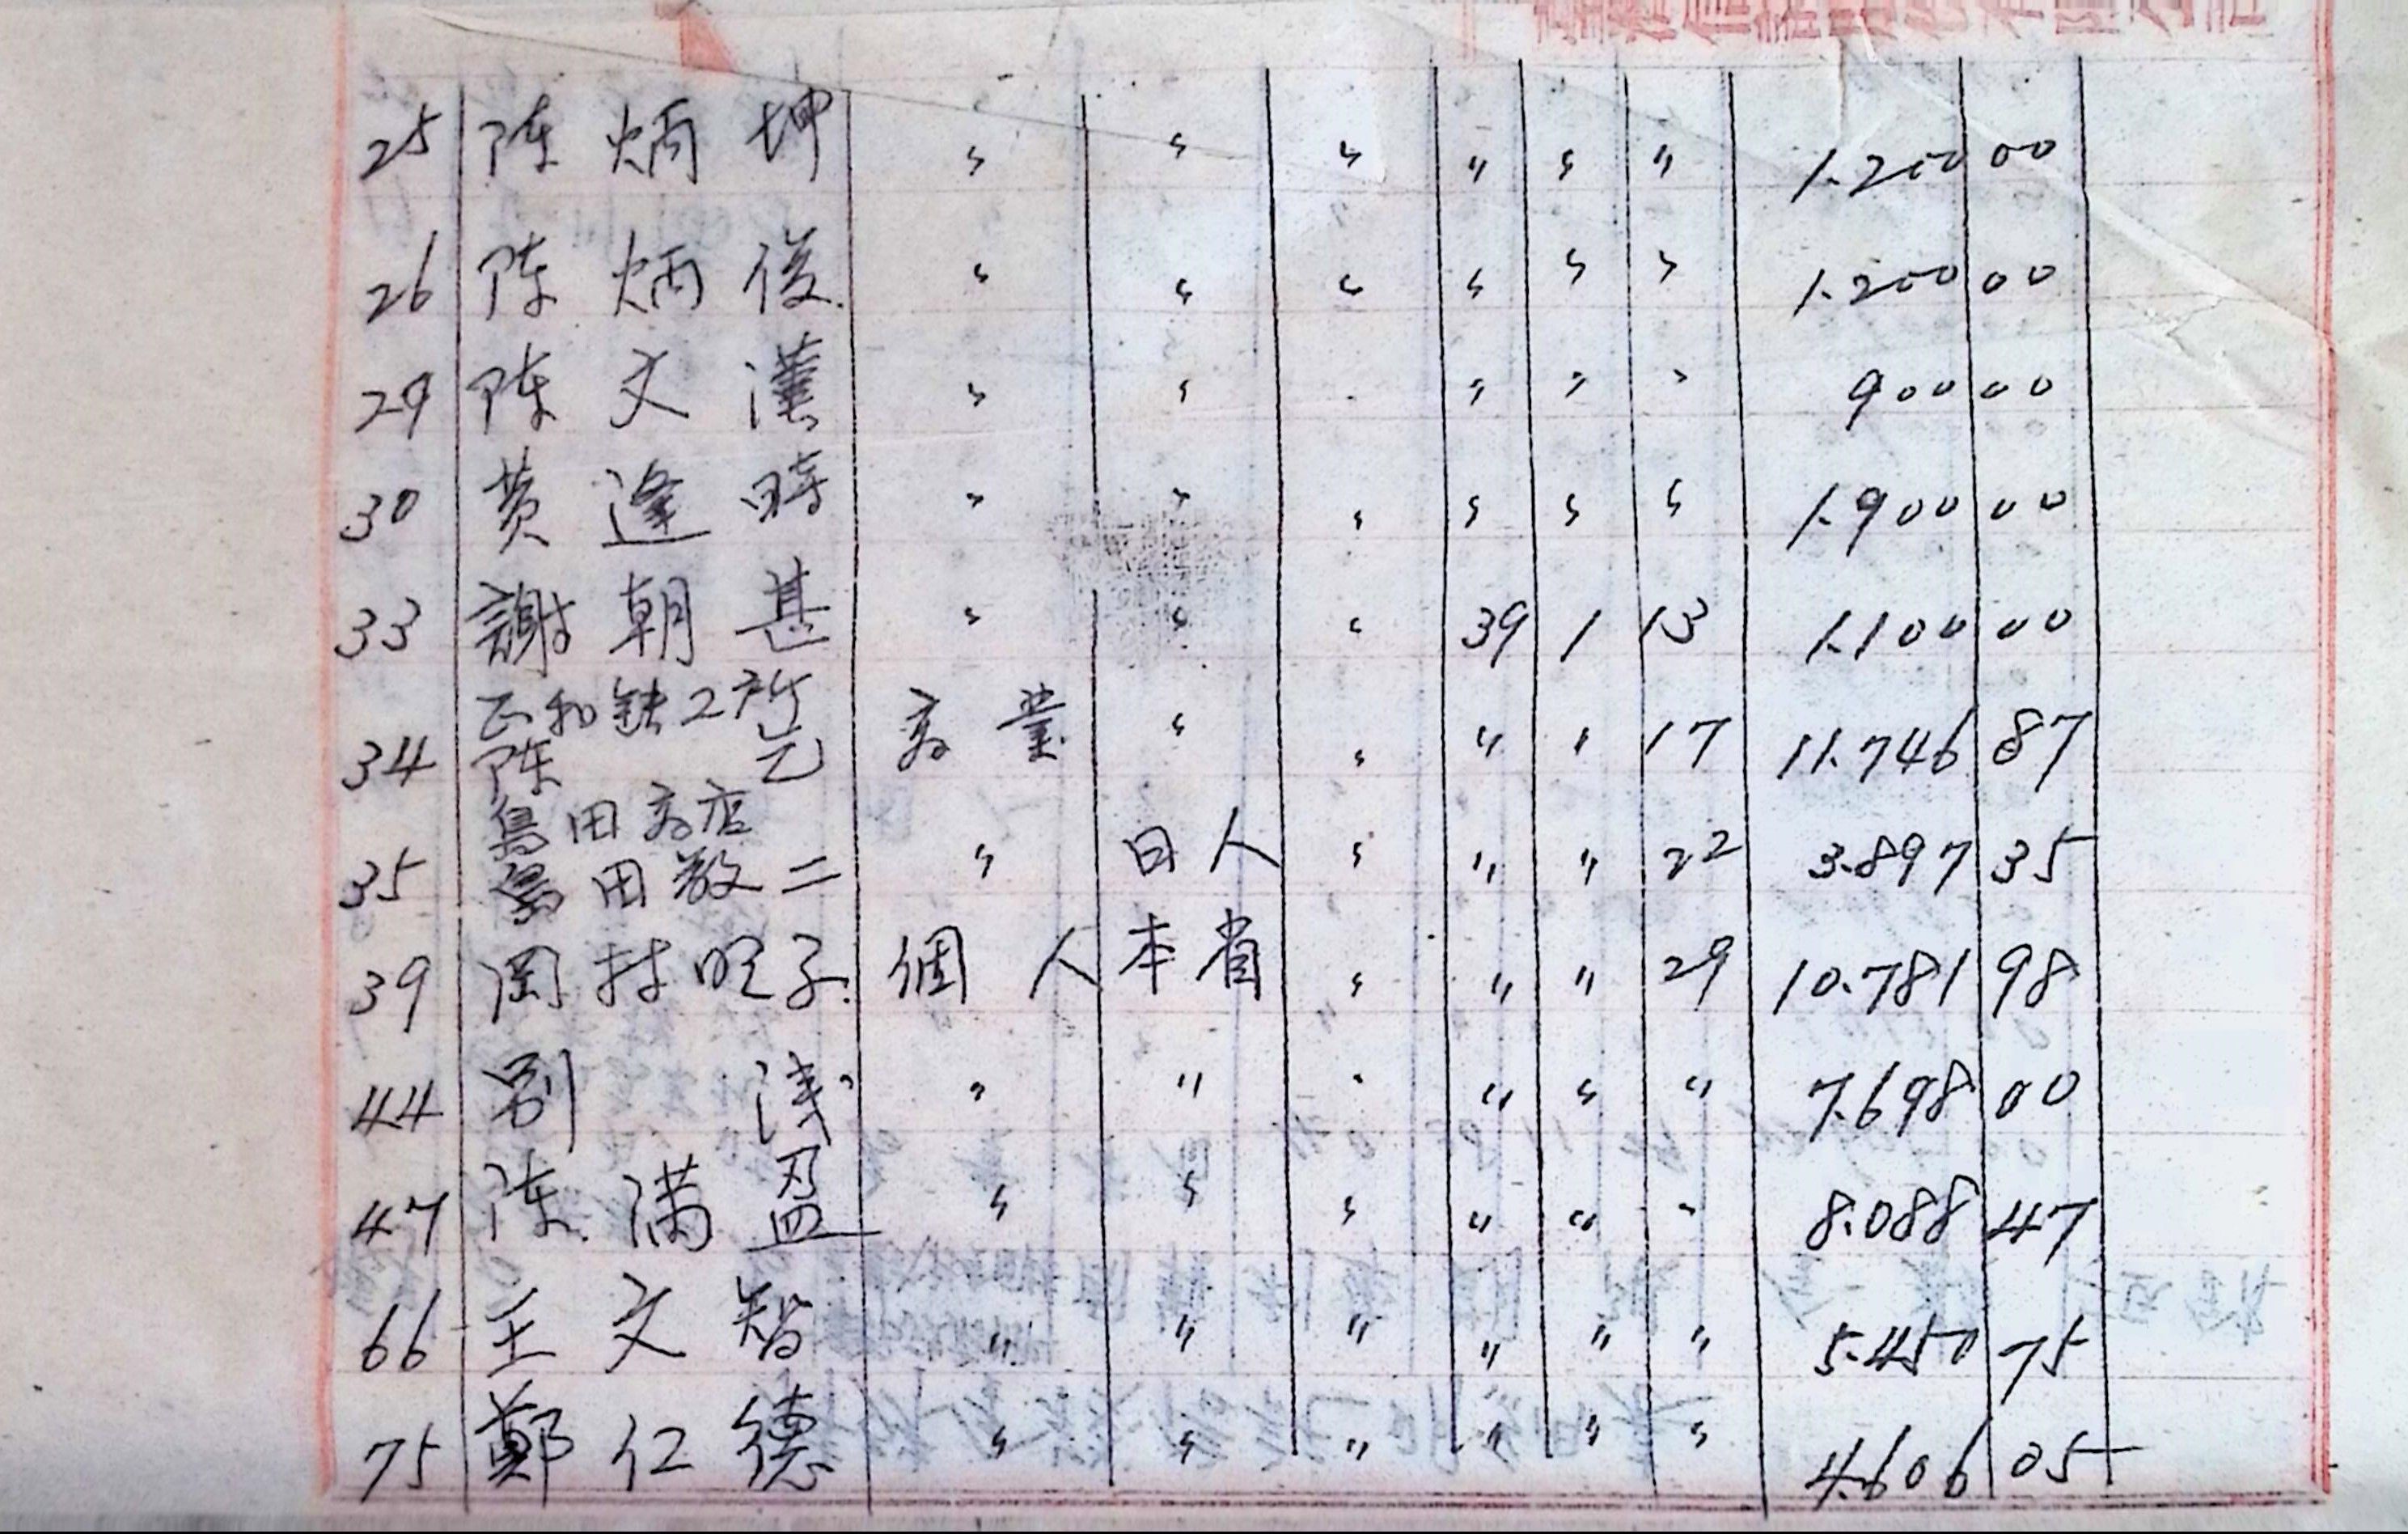 25 陈炳坤 〃 〃 〃 〃 〃 〃 1.200 00
26 陈炳俊 〃 〃 〃 〃 〃 〃 1.200 00
29 陈文漢 〃 〃 〃 〃 〃 〃 900 00
30 黄逢時 〃 〃 〃 〃 〃 〃 1.900 00
33 謝朝甚 〃 〃 〃 39 1 13 1.100 00
正和鉄工所
34 陈乞 商業 〃 〃 〃 〃 17 11.746 87
島田商店
35 島田数二 〃 日人 〃 〃 〃 22 3.897 35
39 岡村旺子 個人 本省 〃 〃 〃 29 10.781 98
44 〃 〃 〃 〃 〃 〃 7.698 00
47 陈满盈 〃 〃 〃 〃 〃 〃 8.088 47
66 王文智 〃 〃 〃 〃 〃 〃 5.450 75
75 鄭仁德 〃 〃 〃 〃 〃 〃 4.606 05